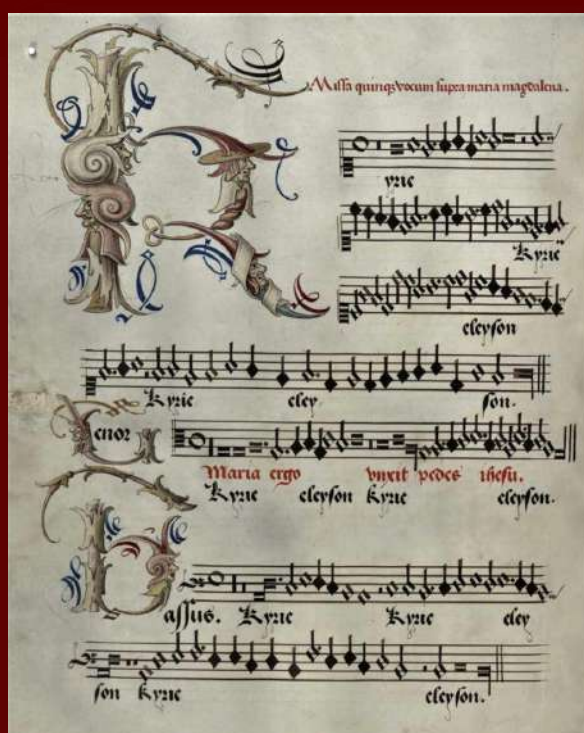 Missa quinqȝ vocum supra maria magdalena.
Kyrie
Kyrie
eleyson
Kyrie eley son.
Tenor
Maria ergo vnxit pedes ihesu.
Kyrie eleyson Kyrie eleyson.
Bassus. Kyrie Kyrie eley
son Kyrie eleyson.